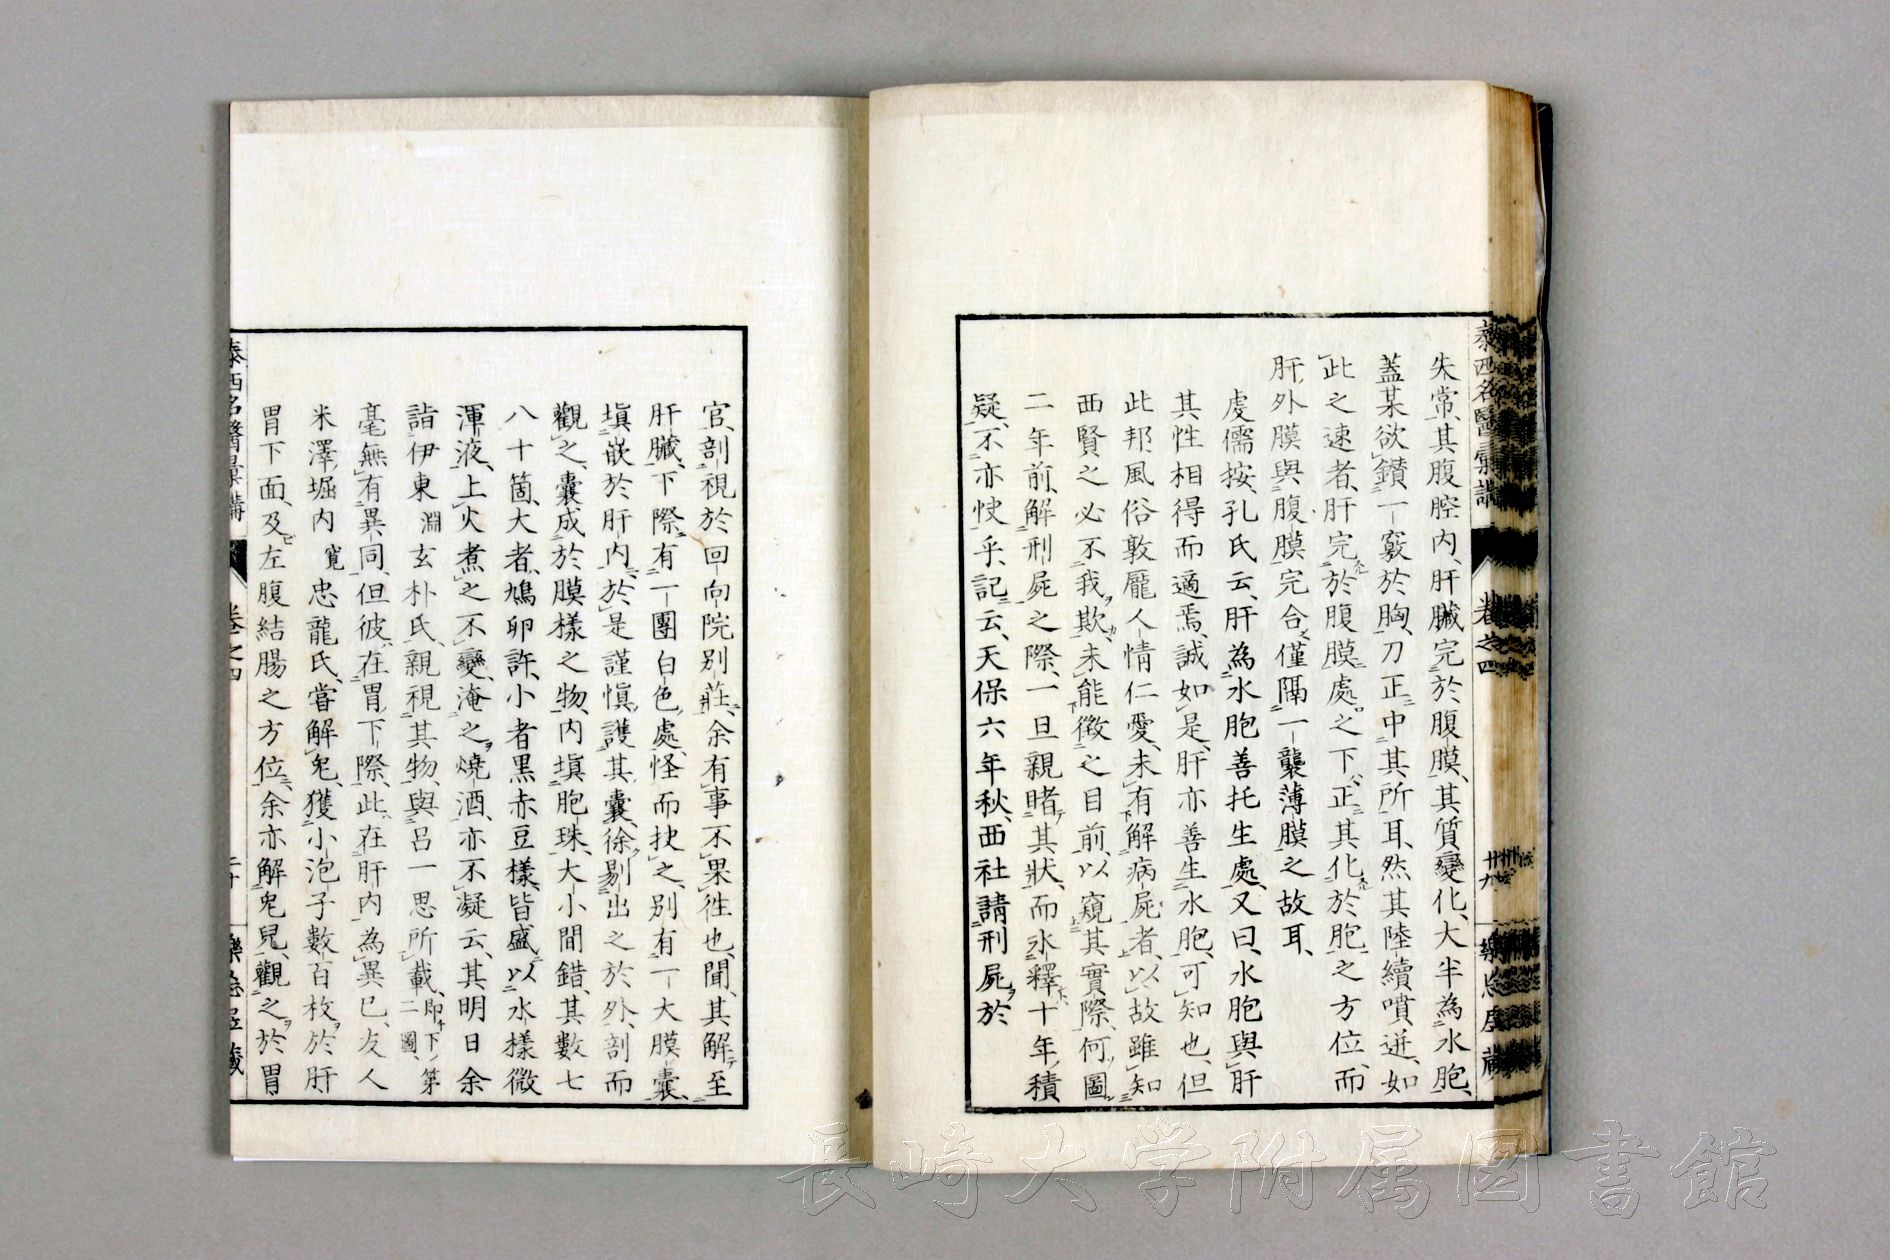 失常、其腹腔内、肝臟完於腹膜、其質變化、大半為水胞、
蓋某欲鑚一竅於胸、刀正中其所耳、然其陸續噴迸、如
此之速者、肝完於腹膜處之下、正其化於胞之方位、而
肝外膜與腹膜完合、僅隔一襲薄膜之故耳、
虔儒按、孔氏云、肝為水胞善托生處、又曰、水胞與肝
其性相得而適焉、誠如是、肝亦善生水胞、可知也、但
此邦風俗敦龐人情仁愛、未有解病屍者、以故雖知
西賢之必不我欺、未能徴之目前、以窺其實際、何圖
二年前、解刑屍之際、一旦親睹其狀、而氷釋十年積
疑、不亦快乎、記云、天保六年秋、西社請刑屍於
泰西名醫彙講
卷之四
官、剖視於回向院別莊、余有事不果徃也、聞、其解至
肝臟、下際有一團白色處、怪而抉之、別有一大膜囊、
塡嵌於肝内、於是謹愼護其囊、徐剔出之於外、剖而
觀之、囊成於膜樣之物、内塡胞珠、大小間錯、其數七
八十箇、大者鳩卵許、小者黒赤豆樣、皆盛以水樣微
渾液、上火煮之不變、淹之燒酒、亦不凝云、其明日余
詣伊東淵玄朴氏、親視其物、與呂一思所載、即下第二圖、
毫無有異同、但彼在胃下際、此在肝内為異已、友人
米澤堀内寛忠龍氏、嘗解皃、獲小泡子數百枚於肝
胃下面、及左腹結腸之方位、余亦解皃兒、觀之於胃
泰西名醫彙講
卷之四
二十